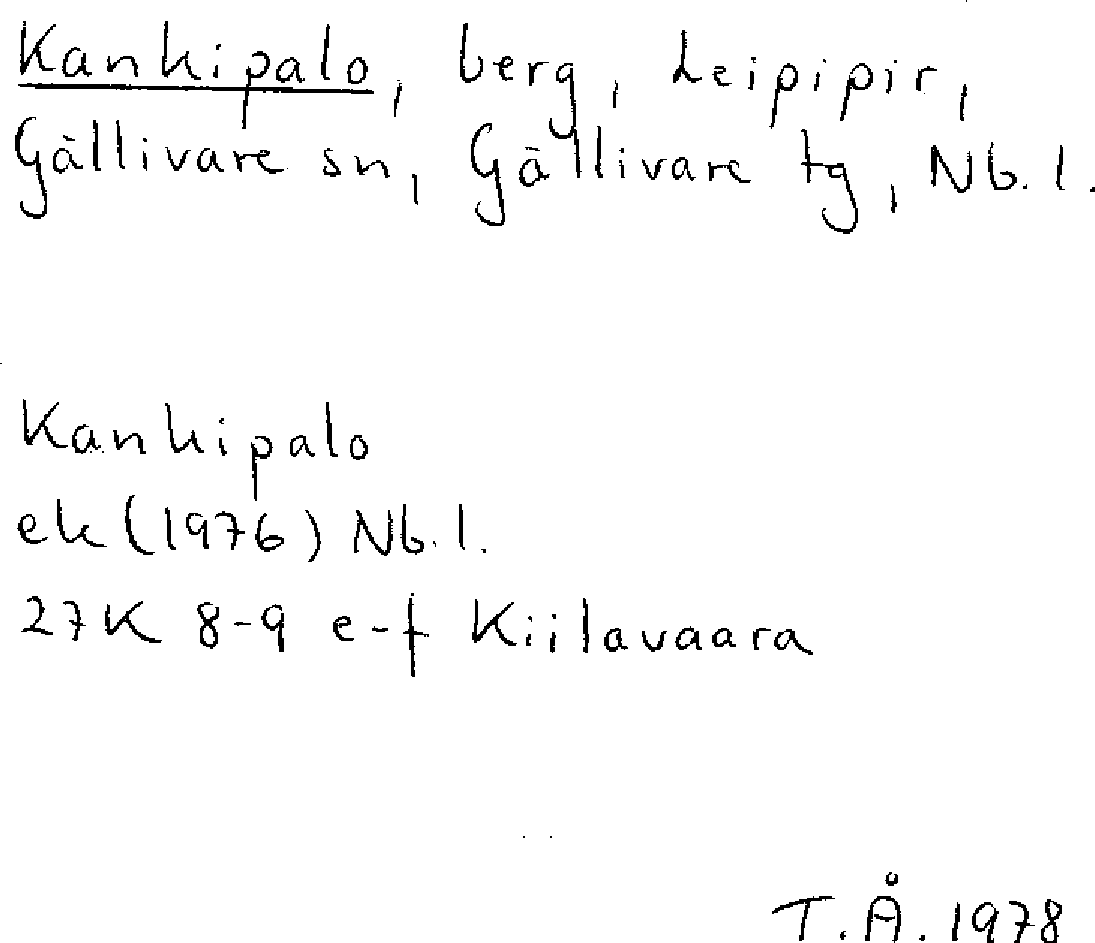 Kankipalo, berg, Leipipir,
Gällivare sn, Gällivare tg, Nb. l.
Kankipalo
ek (1976) Nb. l.
27K 8-9 e-f Kiilavaara
T.Å. 1978